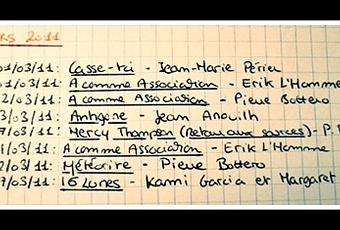 RS 2011
01/03/11: Casse-toi - Jean-Marie Périer
01/03/11: A comme Association - Erik L'Homme
2/03/11: A comme Association - Pierre Bottero
3/03/11: Antigone - Jean Anouilh
7/03/11: Mercy Thompson (Retour aux sources) - P.
/03/11: A comme Association - Erik L'Homme
2/03/11: Météorite - Pierre Bottero
7/03/11: 16 Lunes - Kami Garcia et Margaret